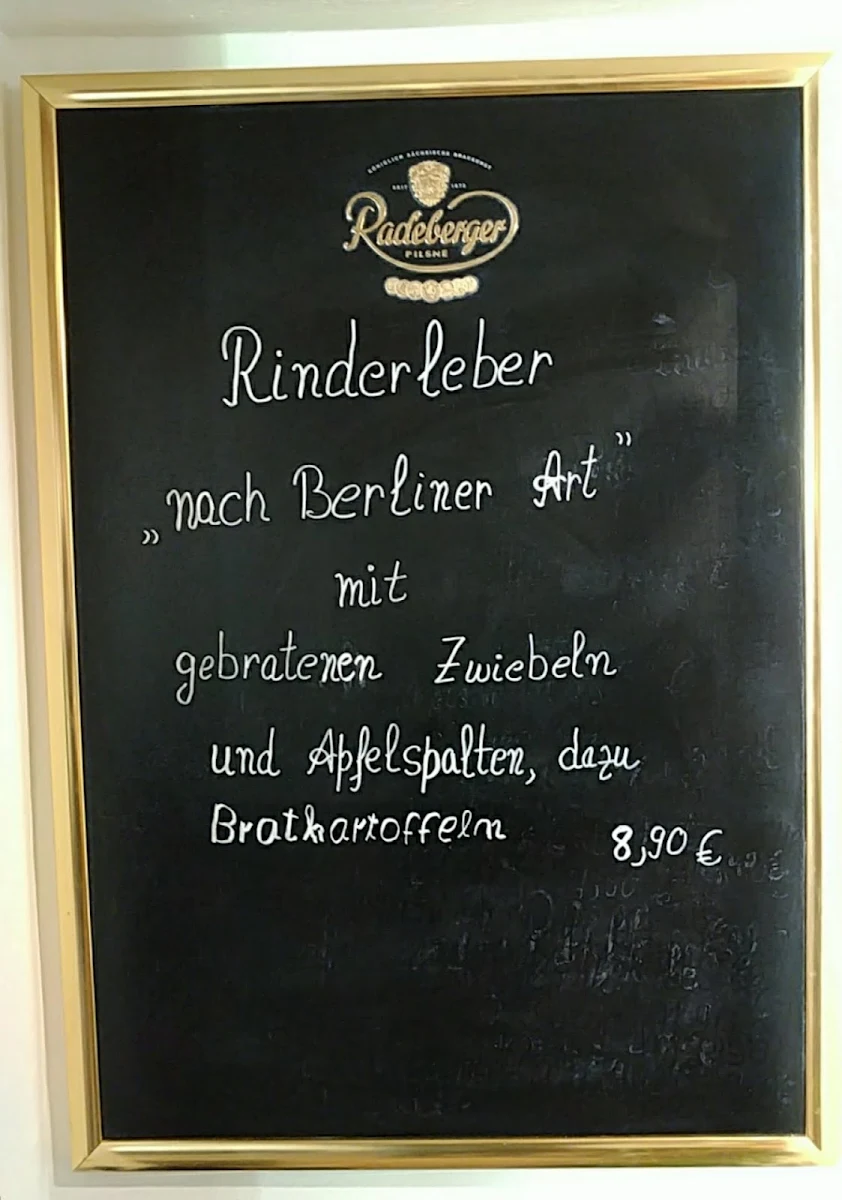 KÖNIGLICH SÄCHSISCHE BRAUKUNST
SEIT 1872
Radeberger
PILSNER
Rinderleber
„nach Berliner Art”
mit
gebratenen Zwiebeln
und Apfelspalten, dazu
Bratkartoffeln 8,90 €